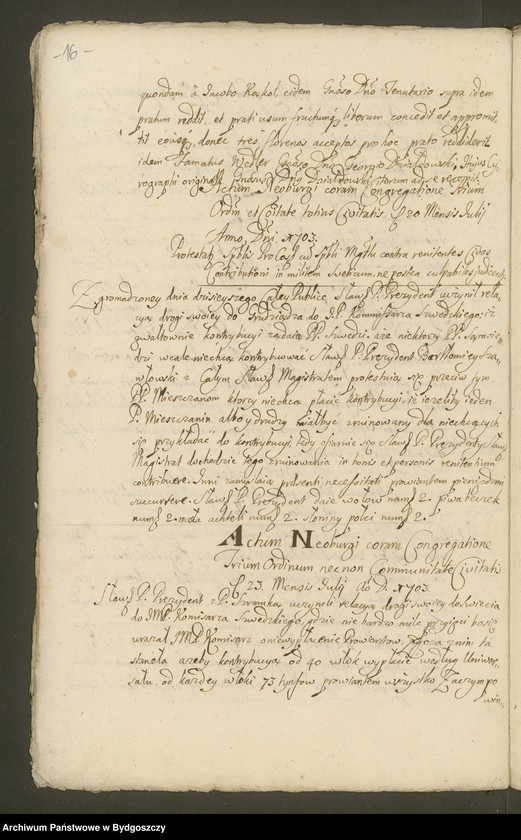 -16-
quondam à Iacobo Kaskol eidem Gnoso Dno Tenutario supra idem
pratum reddit, et prati usum fructumq liberum concedit et appromit,
tit eousq donec tres florenos acceptos pro hoc prato reddiderit
idem Famatus Nedler Gnoso Dno Georgio
rographi originali Gnosus Dnus iterum ad se recepit.
Actum Neoburgi coram Congregatione trium
Ordin et Coitate totius Civitatis D 20 Mensis Julij
Anno Dni 1703.
Protestat Sptlis Pro Csl cū Sptli Mgttu contra renitentes Cives
Contributioni in militem Svetcum, ne postea culpabiles judicent,
Zgromadzoney dnia dzisieyszego Całey Publice, Sław P. Prezydent uczynił rela,
cyą drogi swoiey do Grudziądza do J.P. Kommissarza Szwedzkiego; iż
gwałtownie kontrybucyi żądaią PP. Szwedzi, aże niektorzy PP. Sąmsie,
dzi wcale niechcą kontrybuować Sław P. Prezydent Bartłomiey Sza,
włowski z Całym Sław Magistratem protestuią się przeciw tym
PP. Mieszczanom ktorzy niechcą płacić kontrybucyi, iż ieżeliby ieden
P. Mieszczanin alboy drudzy miałbyć zruinowany dla niechcących
się przykładać do kontrybucyi, tedy ofiaruie się Sław P. Prezydent y Sław
Magistrat dochodzić tego zruinowania in bonis et personis renitentium
contribuere. Inni zamyślaią praesenti necessitati prowiantem pieniądzmi
succurrere. Sław P. Prezydent daie wołow nam 2. piwa beczek
num 2. masła achteli num 2. słoniny połci num 2.
Actum Neoburgi coram Congregatione
Trium Ordinum necnon Communitate Civitatis
D 23. Mensis Julij Ao D. 1703.
Sław P. Prezydent z P. Szramką uczynili relacyą drogi swoiey do Swiecia
do JMP. Komisarza Szwedzkiego, gdzie nie bardzo mile przyięci bo się
urażał JMP Komisarz o niewypłacenie Prowiantow. Zgoda z nim ta
stanęła ażeby kontrybucyą od 40 włok wypłacić według Uniwer,
sału, od każdey włoki 73 tynfow prowiantem wszystko. Zaczym po
win,
Archiwum Państwowe w Bydgoszczy